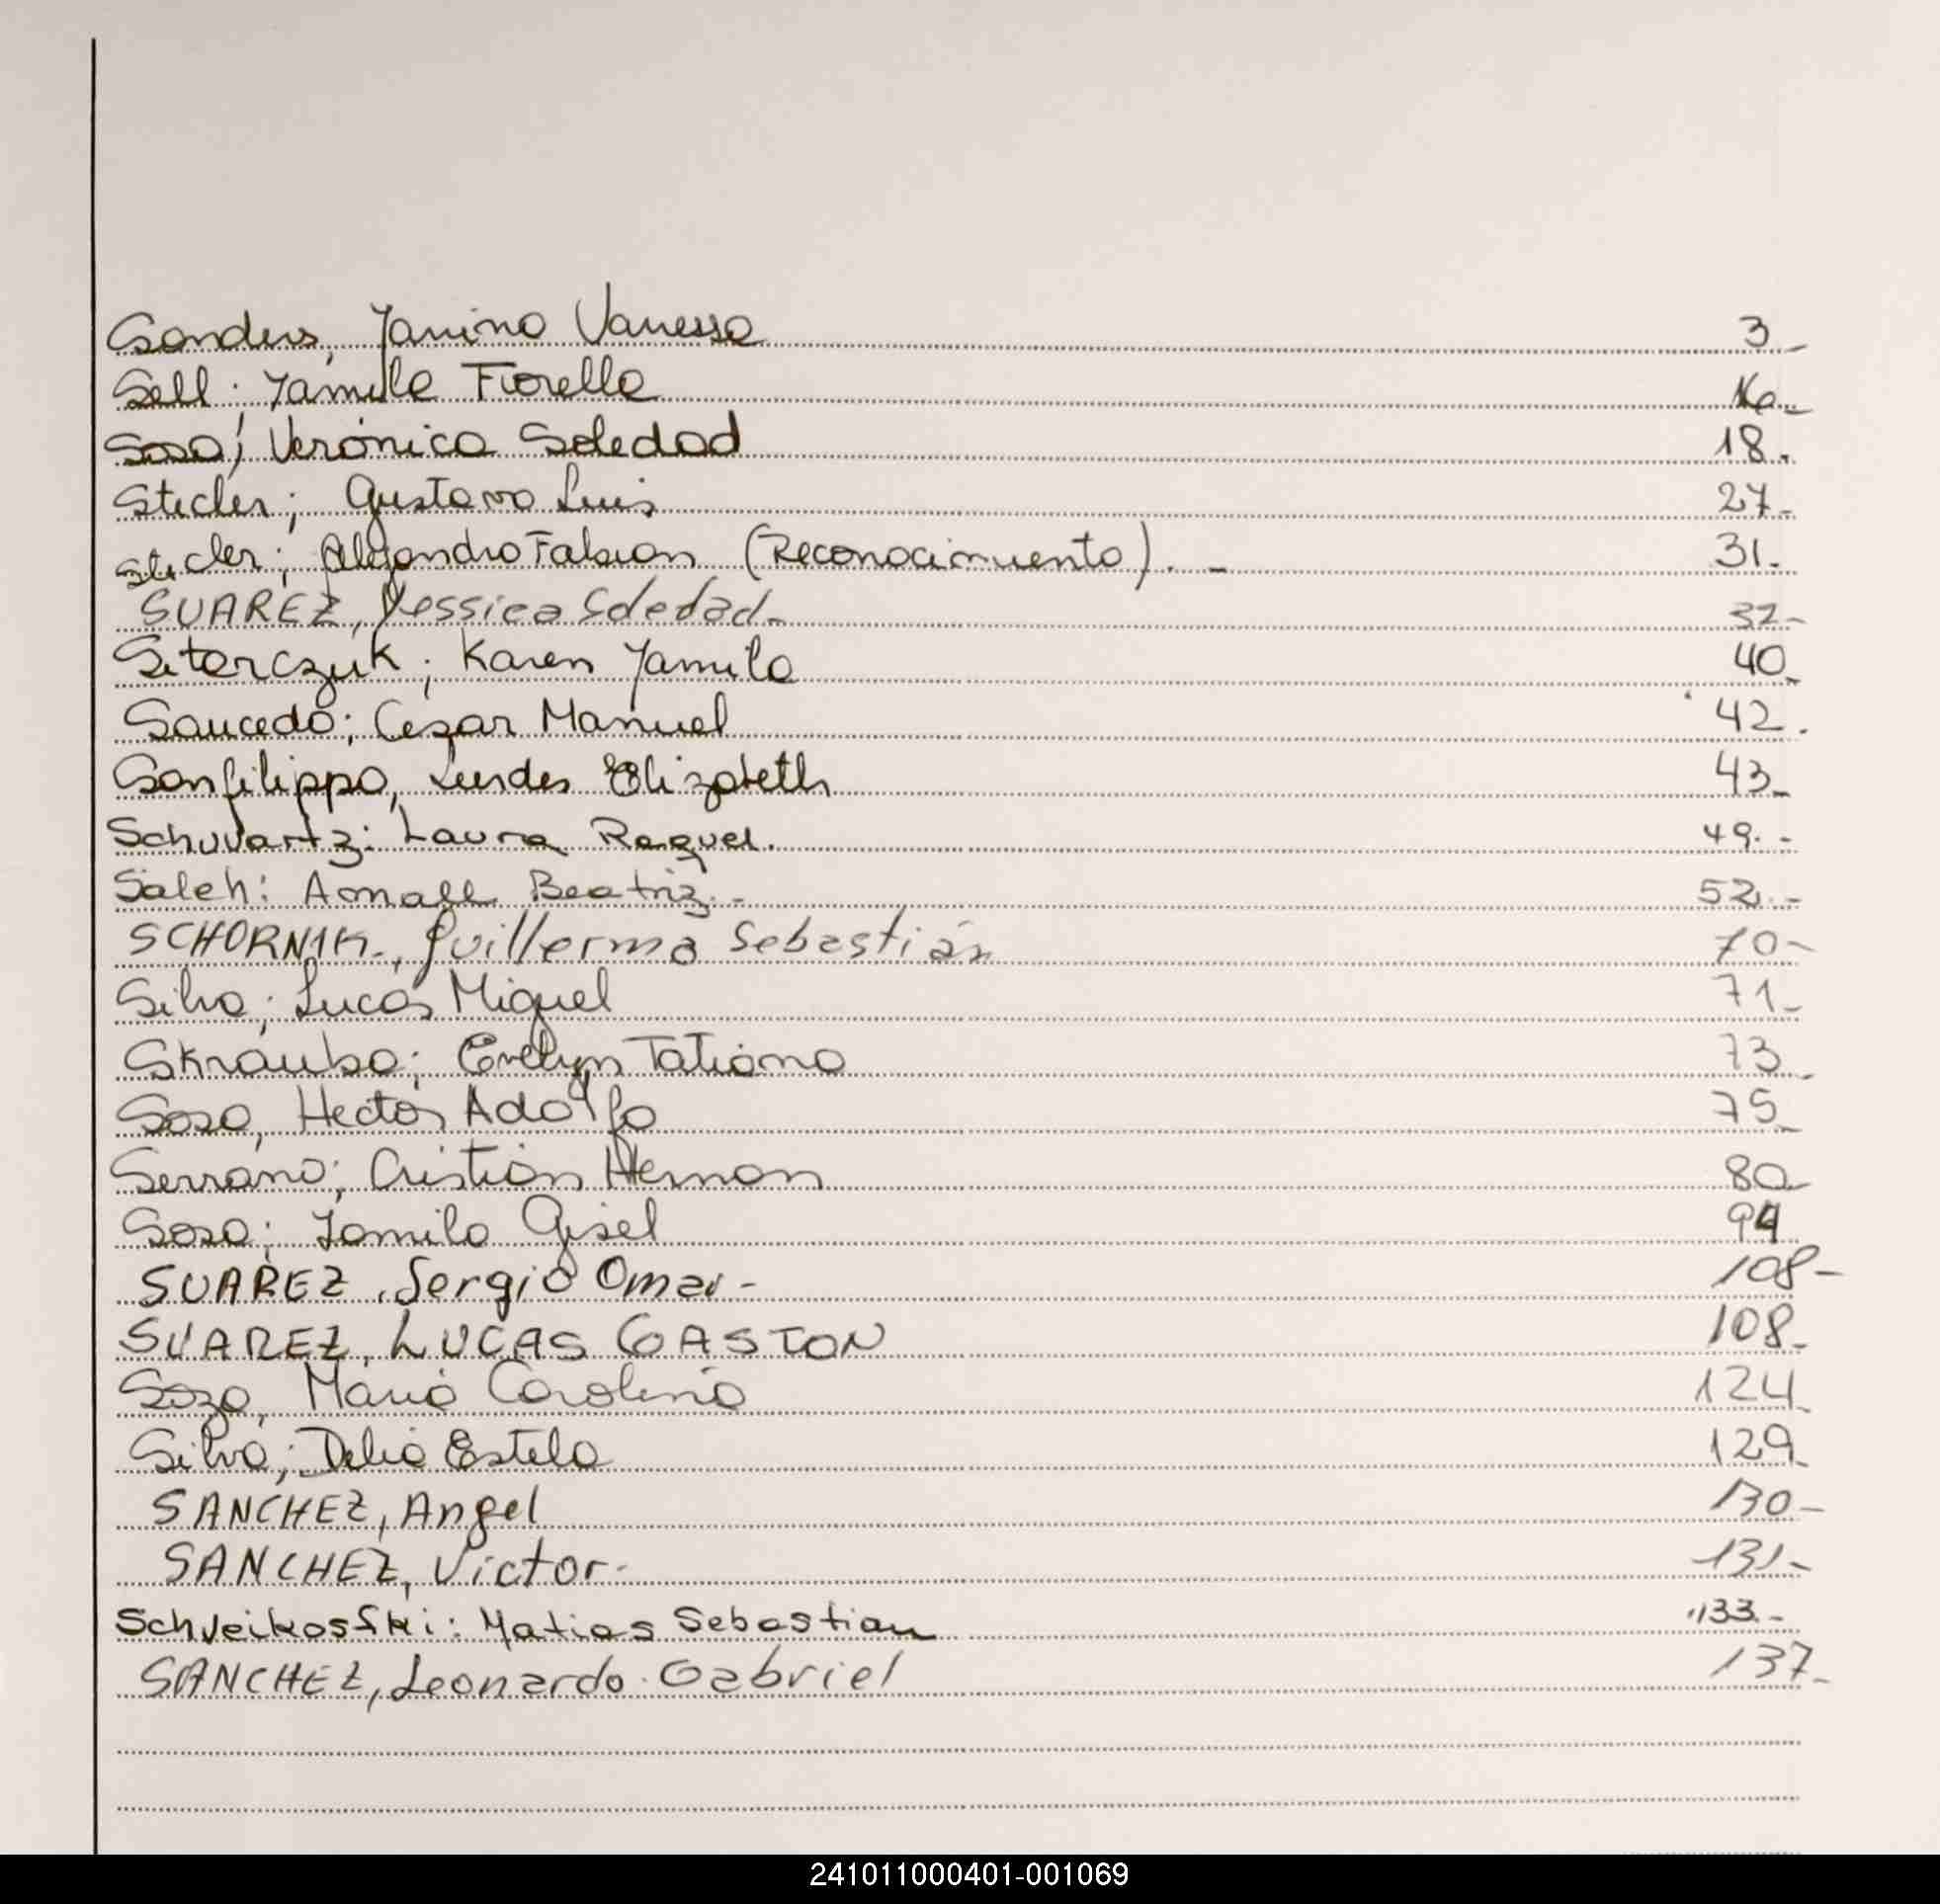 Sanders, Yanina Vanessa 3.-
Sell: Yamila Fiorella 16.-
Sosa; Verónica Soledad 18.
Stecler; Gustavo Luis 27.-
Stecler; Alejandro Fabian (Reconocimiento).- 31.-
SUAREZ, Yessica Soledad.- 32.-
Setorczuk; Karen Yamila 40.-
Saucedo; Cesar Manuel 42.
Sanfilippo, Lurdes Elizabeth 43.-
Schuvartz: Laura Raquel. 49.-
Saleh: Amall Beatriz.- 52.-
SCHORNIK, Guillermo Sebastián 70-
Silva; Lucas Miguel 71.-
Skrauba; Evelyn Tatiana 73.
Sosa, Hector Adolfo 75.-
Serrano; Cristian Hernan 80.-
Sosa; Yamila Gisel 94
SUAREZ, Sergio Omar- 108-
SUAREZ, LUCAS GASTON 108.-
Soza, Maria Carolina 124.
Silva; Delia Estela 129.
SANCHEZ, Angel 130-
SANCHEZ, Victor- 131.-
Schveikosfki: Matias Sebastian 133.-
SANCHEZ, Leonardo Gabriel 137.-
241011000401-001069